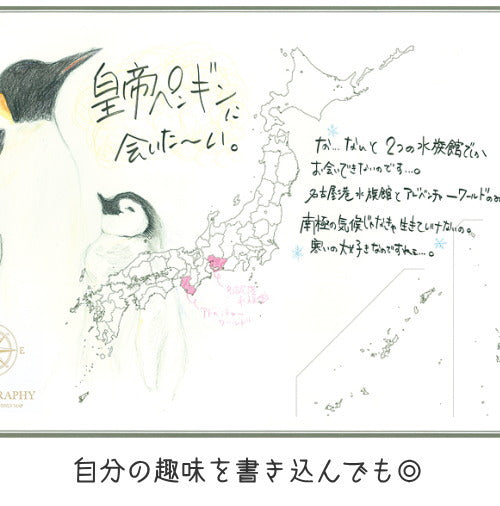 皇帝ペンギンに
会いた〜い。
な…なんと2つの水族館でしか
お会いできないのです…。
名古屋港水族館とアドベンチャーワールドのみ
南極の気候じゃなきゃ生きていけないの。
寒いの大好きなのですねェ…。
名古屋港
水族館
アドベンチャー
ワールド
E
RAPHY
自分の趣味を書き込んでも◎